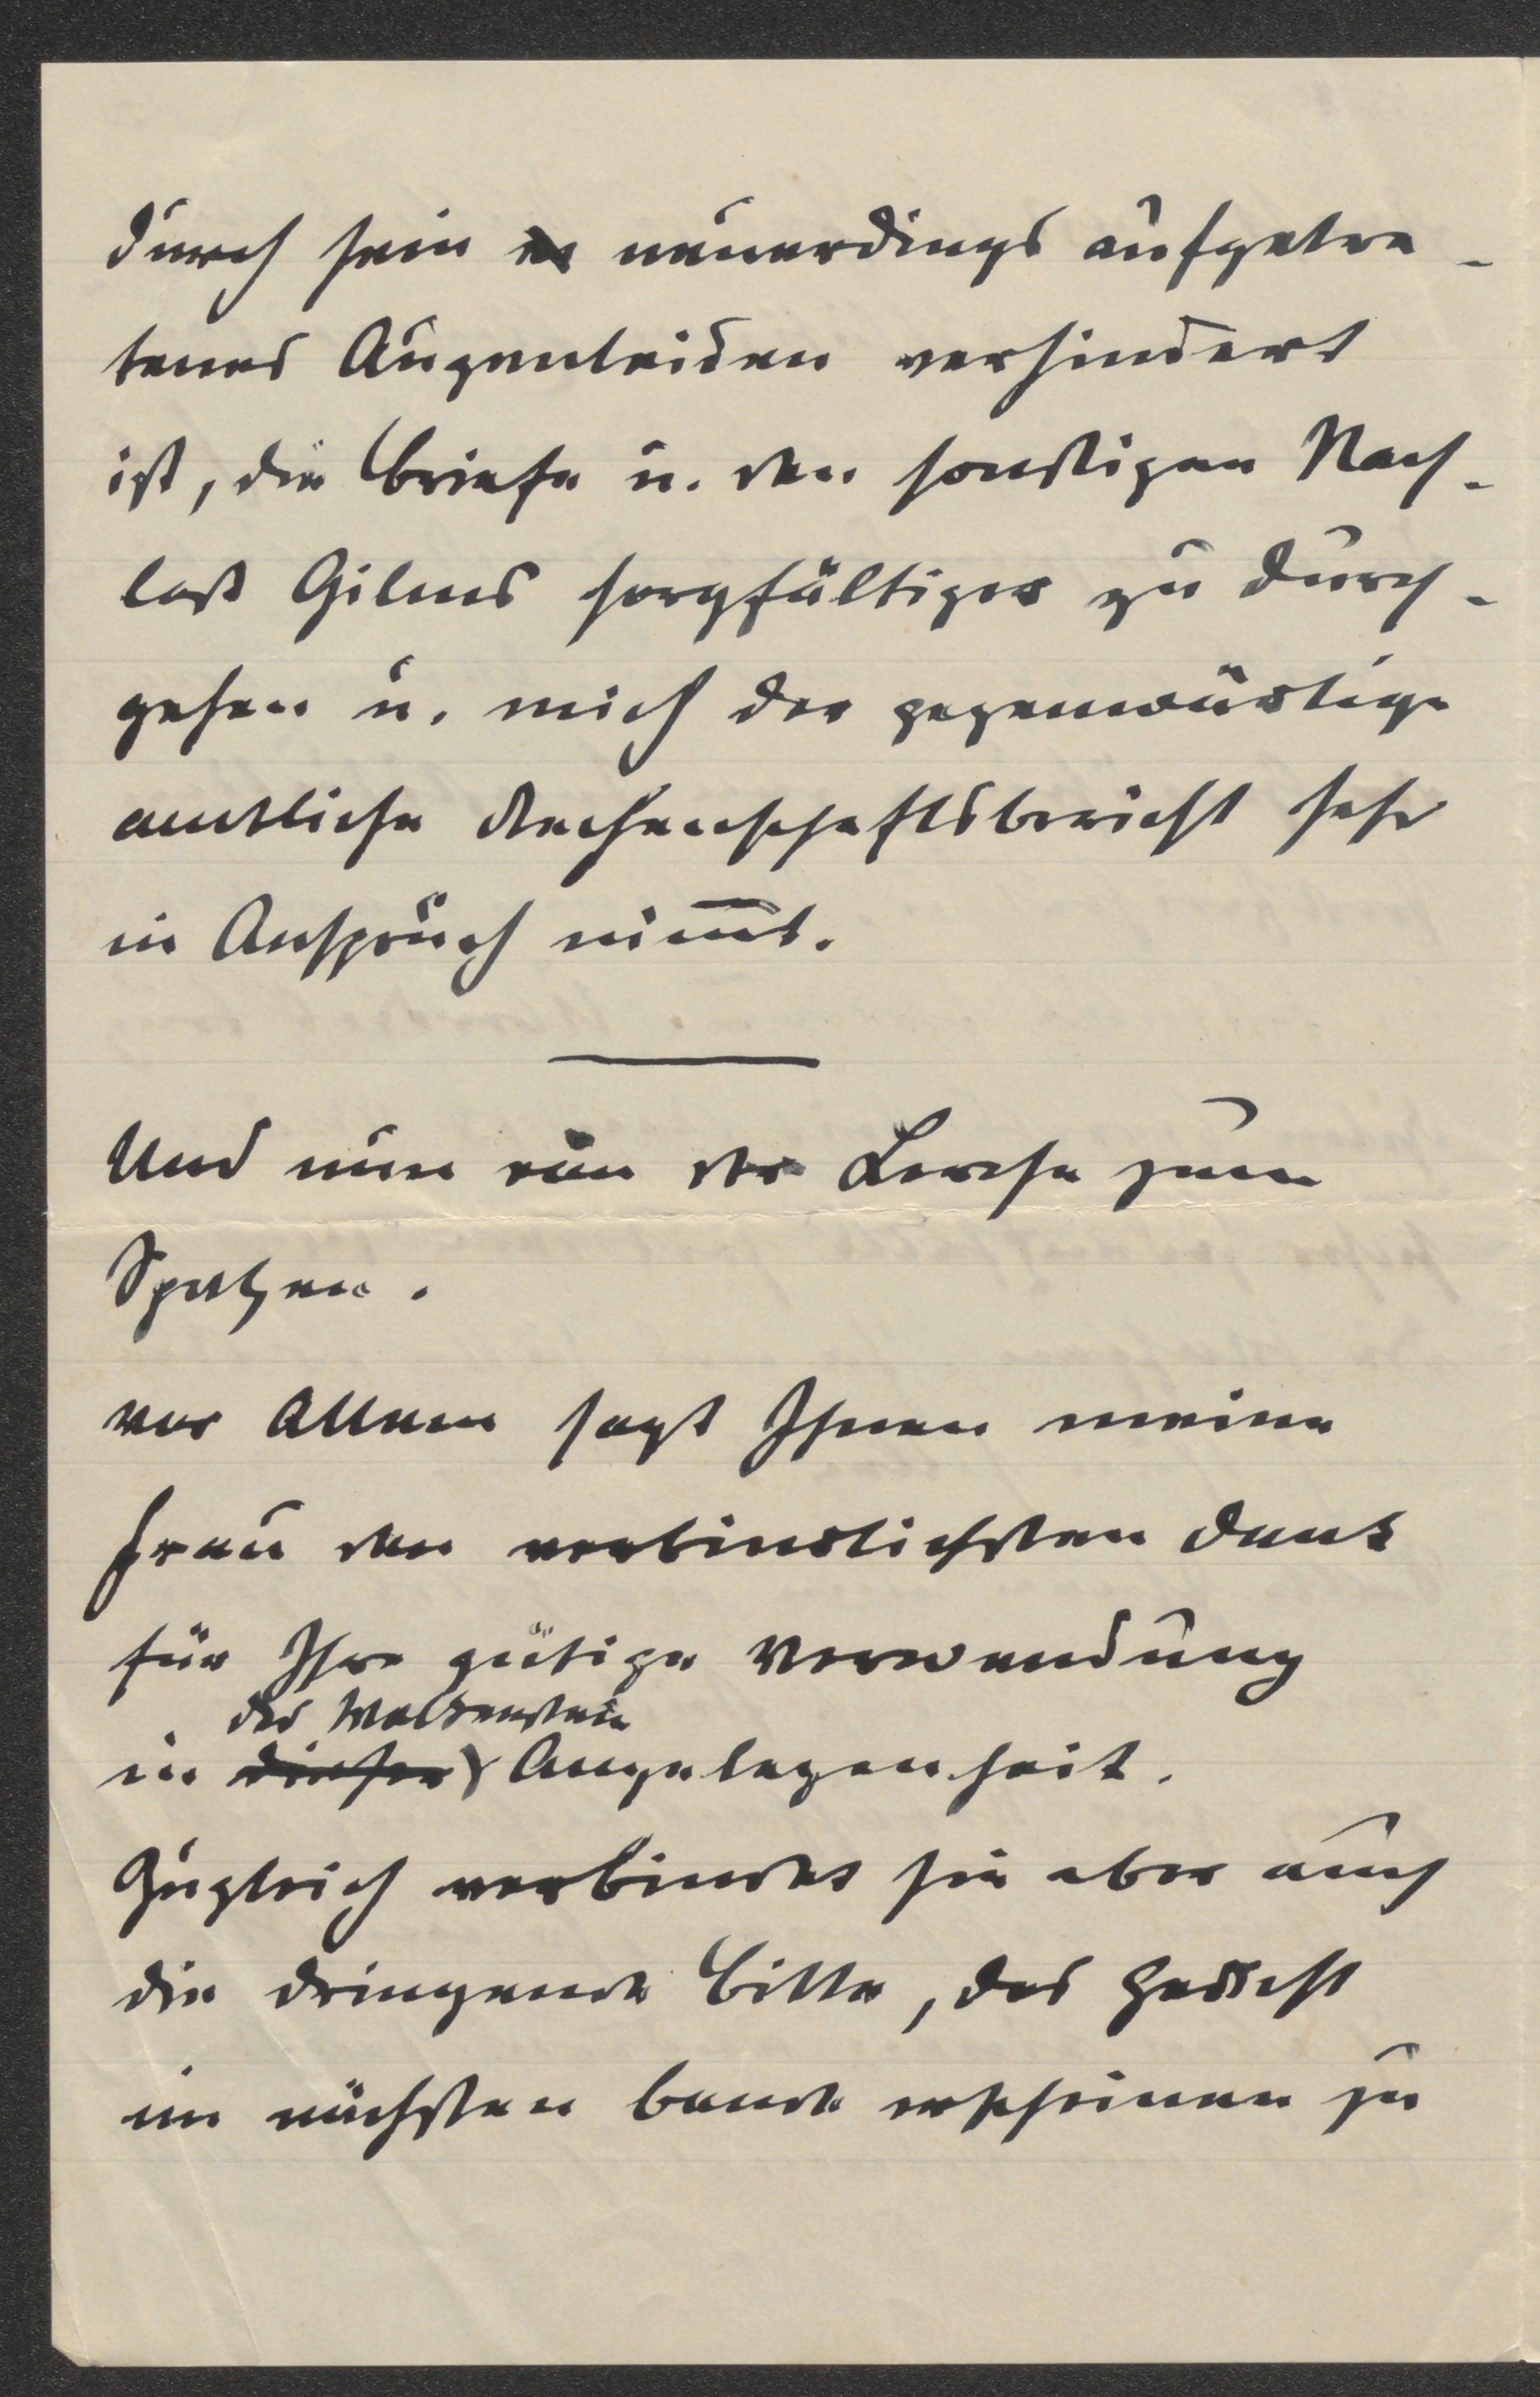 durch sein neuerdings aufgetre-
tenes Augenleiden verhindert
ist, die Briefe u. den sonstigen Nach-
laß Gilms sorgfältiger zu durch-
gehen u. mich der gegenwärtige
amtliche Rechenschaftsbericht sehr
in Anspruch nim̅t.
Und nun von der Lerche zum
Spatzen.
vor Allem sagt Ihnen meine
Frau den verbindlichsten Dank
für Ihre gütige Verwendung
der Wolkenstein
in dieser Angelegenheit.
Zugleich verbindet sie aber auch
die dringende Bitte, das Gedicht
im nächsten Bande erscheinen zu